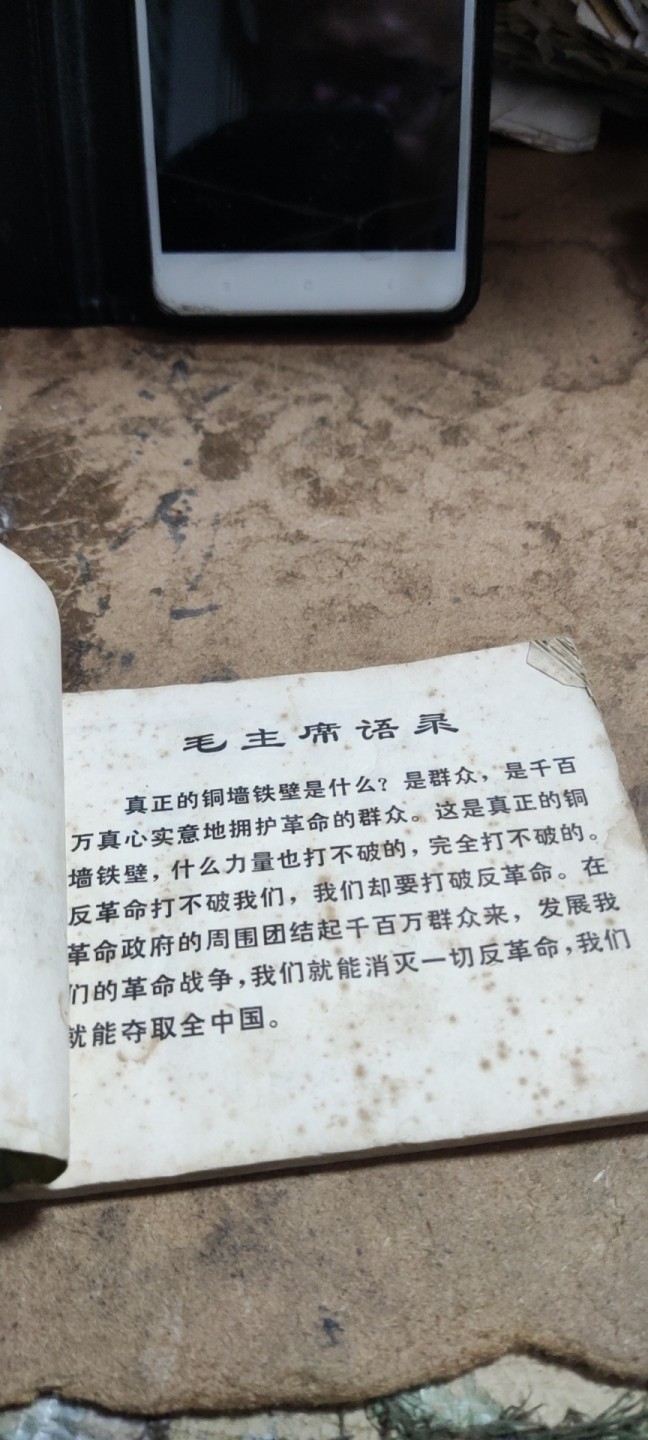 毛主席语录
真正的铜墙铁壁是什么？是群众，是千百
万真心实意地拥护革命的群众。这是真正的铜
墙铁壁，什么力量也打不破的，完全打不破的。
反革命打不破我们，我们却要打破反革命。在
革命政府的周围团结起千百万群众来，发展我
们的革命战争，我们就能消灭一切反革命，我们
就能夺取全中国。